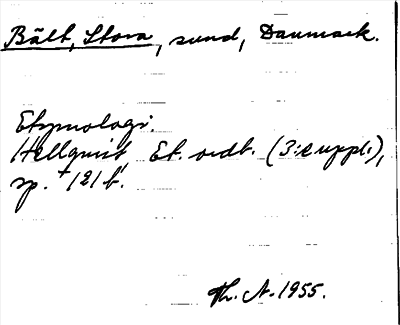 Bält, Stora, sund, Danmark.
Etymologi.
Hellquist, Et. ordb. (3:e uppl.),
sp. 121 f.
Th. A. 1955.